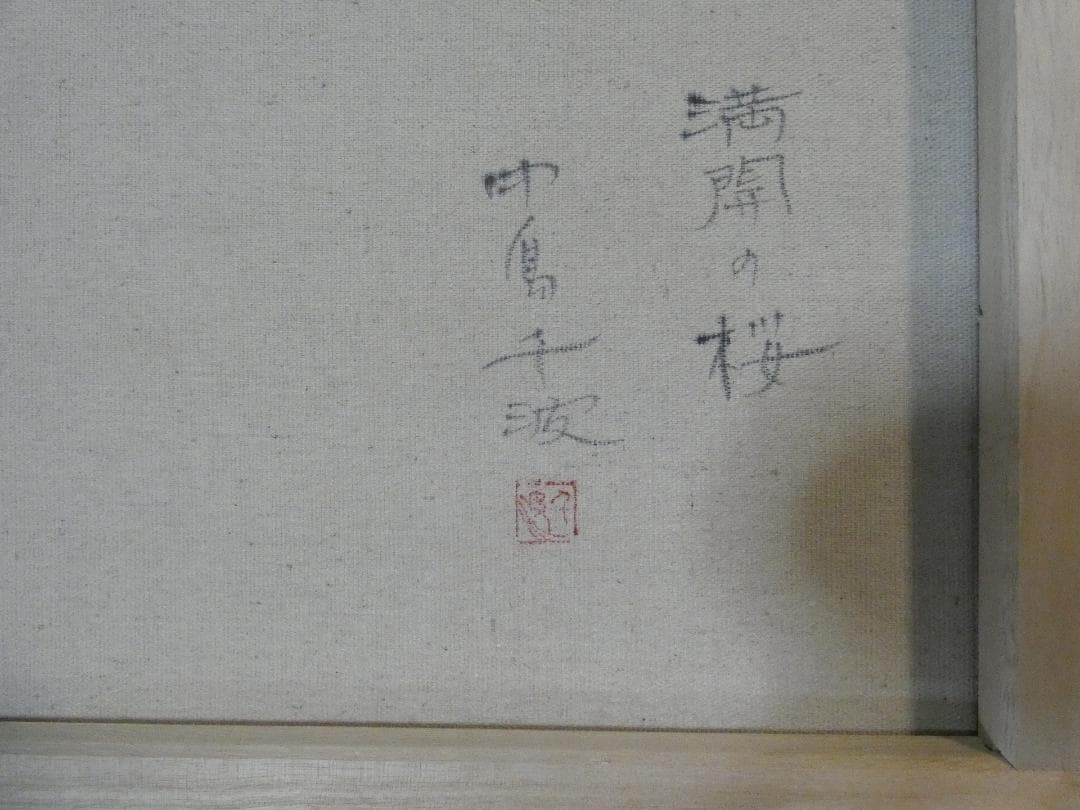 満開の桜
中島千波